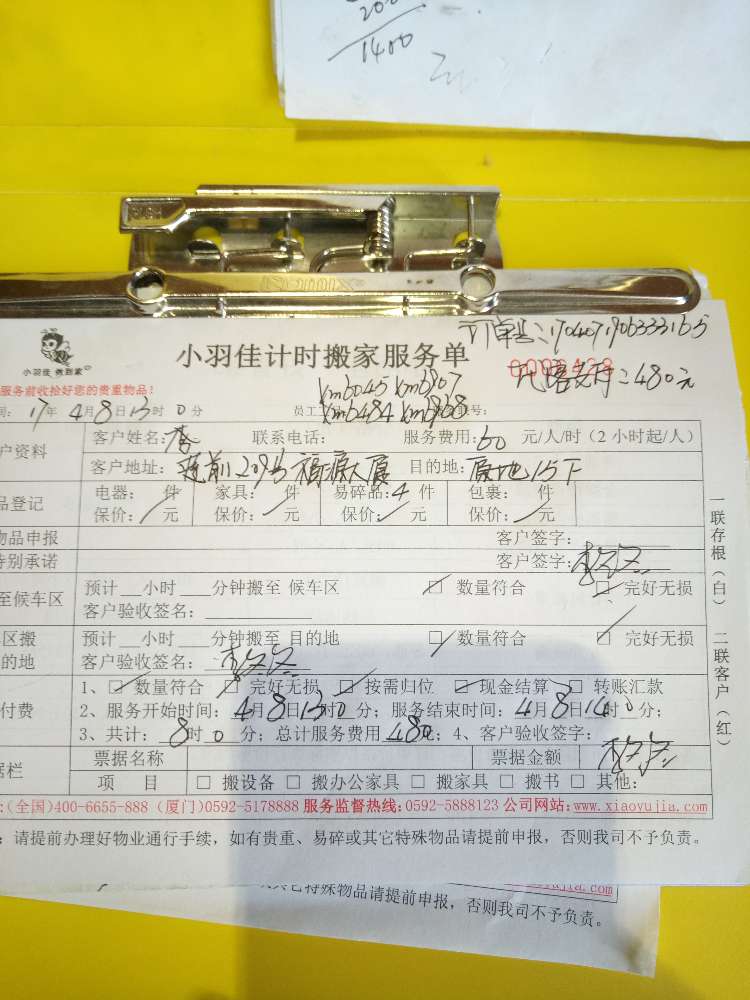 200
1400
订单号:1704071906333165
小羽佳 俏到家
小羽佳计时搬家服务单
代客支付:480元
服务前收拾好您的贵重物品!
xm6045 xm6907
间: 17年4月8日13时0分 员工工 xm6484 xm6938 职号:
户资料 客户姓名: 李 联系电话: 服务费用:60 元/人/时(2小时起/人)
客户地址: 209号福源大厦 目的地: 原地15下
品登记 电器: 件 家具: 件 易碎品:4 件 包裹: 件
保价: 元 保价: 元 保价: 元 保价: 元
物品申报 客户签字:
特别承诺 客户签字:
至候车区 预计__小时 ___分钟搬至 候车区 ☑ 数量符合 ☑ 完好无损
客户验收签名:
区搬 预计__小时 ___分钟搬至 目的地 ☑ 数量符合 ☐ 完好无损
的地 客户验收签名:
付费 1、☑ 数量符合 ☑ 完好无损 ☑ 按需归位 ☑ 现金结算 ☐ 转账汇款
2、服务开始时间: 4月8日13时0分; 服务结束时间: 4月8日14时0分;
3、共计: 8时0分; 总计服务费用 480元; 4、客户验收签字:
据栏 票据名称 票据金额
项 目 ☐ 搬设备 ☐ 搬办公家具 ☐ 搬家具 ☐ 搬书 ☐ 其他:
:(全国)400-6655-888 (厦门)0592-5178888 服务监督热线:0592-5888123 公司网站:www.xiaoyujia.com
:请提前办理好物业通行手续,如有贵重、易碎或其它特殊物品请提前申报,否则我司不予负责。
一联存根(白) 二联客户(红)
jia.com
其它特殊物品请提前申报,否则我司不予负责。